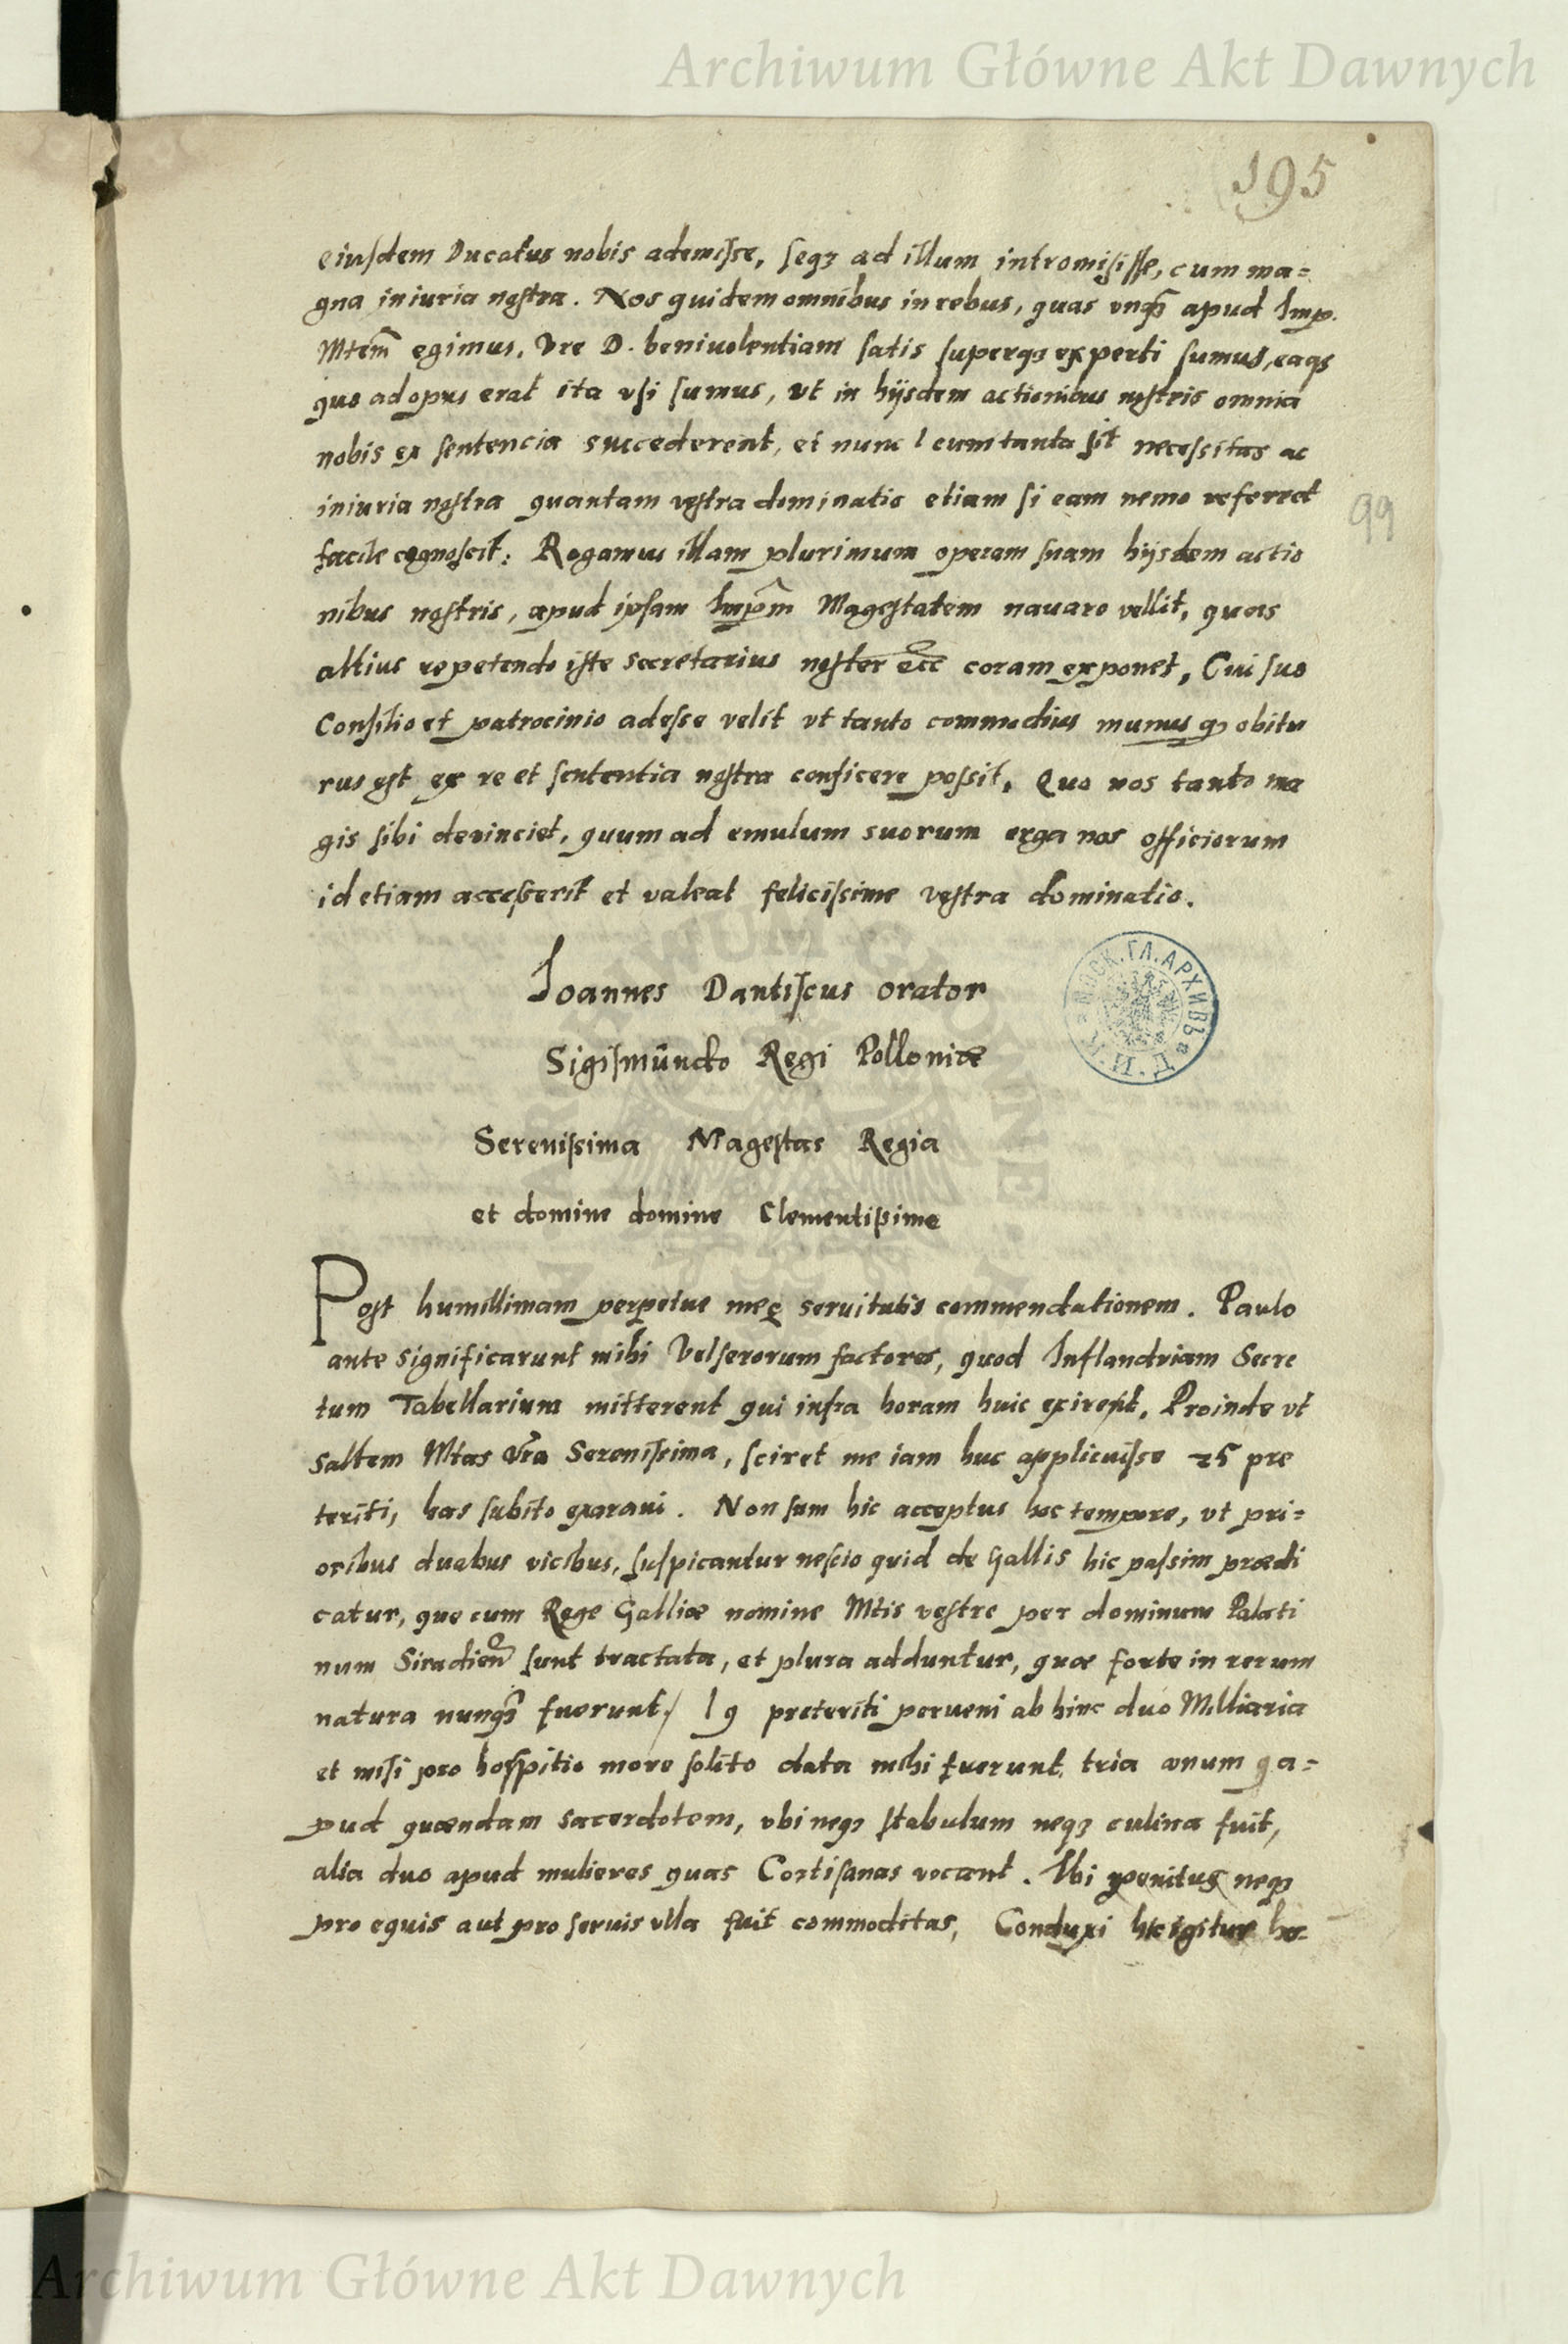 Archiwum Główne Akt Dawnych
195
eiusdem Ducatus nobis ademisse, seqꝫ ad illum intromisisse, cum ma=
gna iniuria nostra. Nos quidem omnibus in rebus, quas vnqȝ apud Imp.
Mtem̃ egimus, Vre D. beniuolentiam satis superqꝫ experti sumus, eaqꝫ
quo ad opus erat ita vsi sumus, vt in hijsdem actionibus nostris omnia
nobis ex sentencia succederent, et nunc cum tanta sit necessitas ac
iniuria nostra quantam vestra dominatio etiam si eam nemo referret
99
facile cognoscit: Rogamus illam plurimum operam suam hijsdem actio
nibus nostris, apud ipsam Imp̃m Magestatem nauare vellit, quas
altius repetendo iste secretarius noster ecc̃ coram exponet, Cui suo
Consilio et patrocinio adesse velit vt tanto commodius munus qꝫ obitu
rus est ex re et sententia nostra conficere possit, Quo nos tanto ma
gis sibi deuinciet, quum ad emulum suorum erga nos officiorum
id etiam accesserit et valeat felicissime vestra dominatio.
Ioannes Dantiscus orator
Sigismũndo Regi Polloniæ
МОСК. ГЛ. АРХИВЪ
Serenissima Magestas Regia
et domine domine Clementissime
Post humillimam perpetue meę seruitutis commendationem. Paulo
ante significarunt mihi Velserorum factores, quod Inflandriam Secre
tum Tabellarium mitterent qui infra horam huic exirent, Proinde vt
saltem Mtas Vrã Serenissima, sciret me iam huc applicuisse 25 pre
teriti, has subito exaraui. Non sum hic acceptus hoc tempore, vt pri=
oribus duabus vicibus, suspicantur nescio quid de Gallis hic passim prædi
catur, que cum Rege Galliæ nomine Mtis vestre per dominum Palati
num Siradien̄ sunt tractata, et plura adduntur, quæ forte in rerum
natura nunqȝ fuerunt / 19 preteriti perueni ab hinc duo Milliaria
et misi pro hospitio more solito data mihi fuerunt tria ænum qa=
pud quændam sacerdotem, vbi neqꝫ stabulum neqꝫ culina fuit,
alia duo apud mulieres quas Cortisanas vocant. Vbi penitus neqꝫ
pro equis aut pro seruis vlla fuit commoditas, Conduxi hic igitur ho=
Archiwum Główne Akt Dawnych